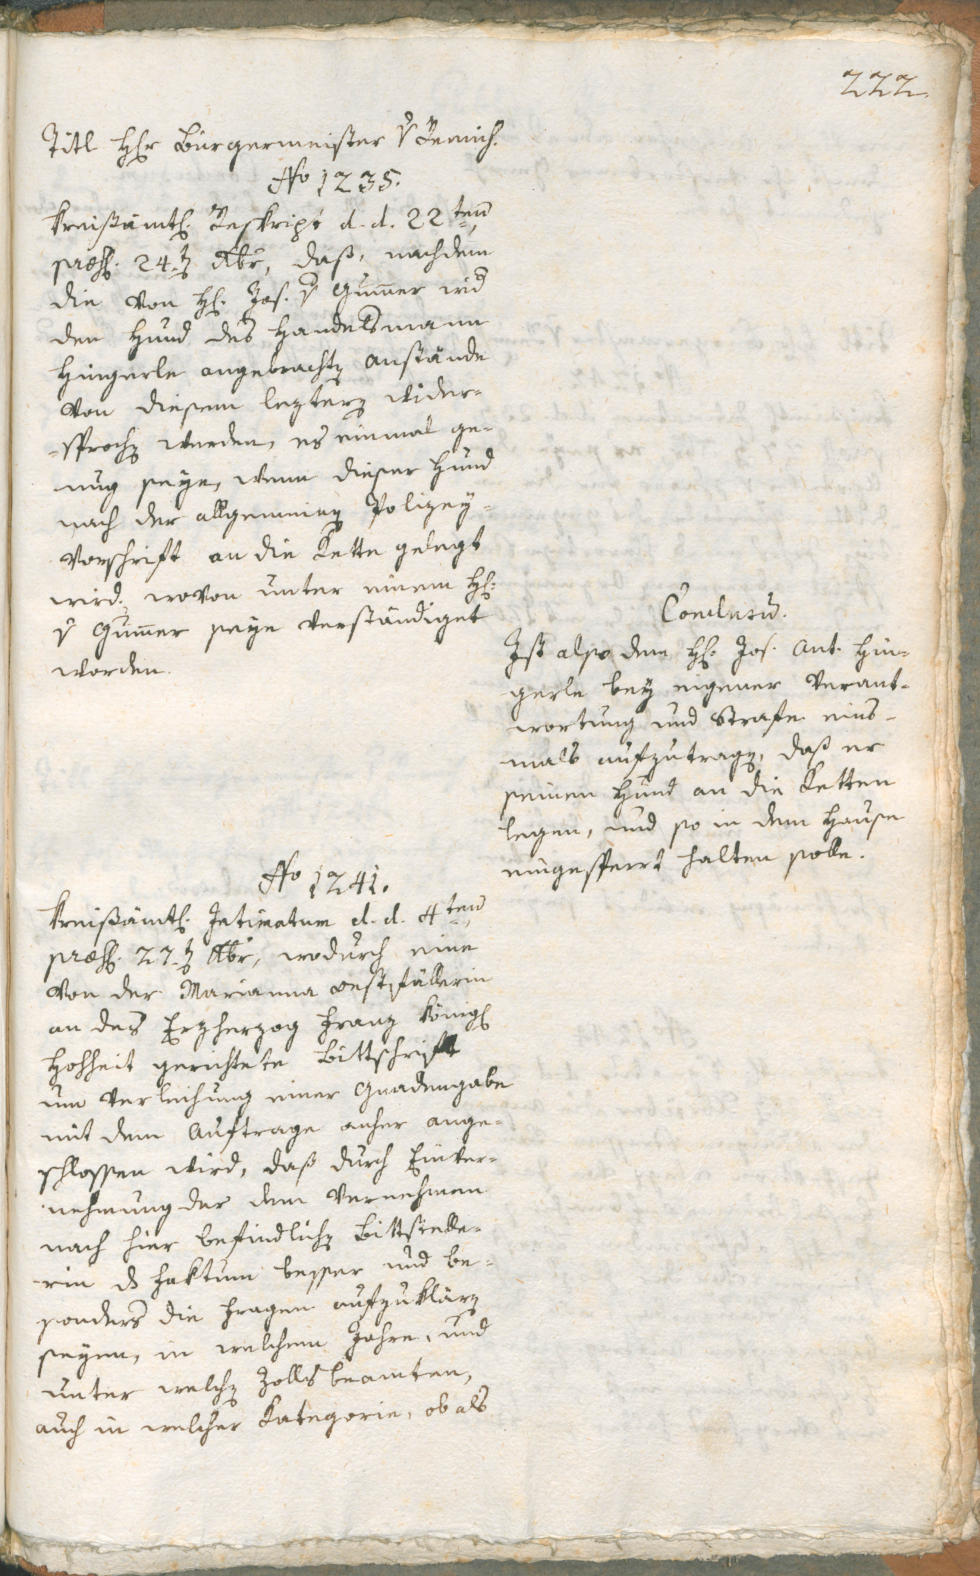 222.
Titl Hr Bürgermeister v Remich.
No 1235.
Kreißämtl. Reskript d. d. 22ten
præs. 24. 7 Xbr, daß, nachdem
die von H. Jos. v Gum̄er wid
den Hund des Handelsmann
Hingerle angebrachtē Anstände
von diesem leztern wider-
-sprochē werden, es einmal ge-
nug seye, wenn dieser Hund
nach der allgemeinē Polizey-
Vorschrift an die Kette gelegt
wird, wovon unter einem H.
v Gum̄er seye verständiget
worden.
Conclusū.
Ist also dem H. Jos. Ant. Hin-
gerle bey eigener Verant-
wortung und Strafe eins-
mals aufzutragē, daß er
seinen Hund an die Ketten
legen, und so in dem Hause
eingesperrt halten solle.
No 1241.
Kreißämtl. Intimatum d. d. 4ten
præs. 27. 7 Xbr, wodurch eine
von der Marianna Oestfällerin
an des Erzherzog Franz Königl
Hohheit gerichtete Bittschrift
um Verleihung einer Gnadengabe
mit dem Auftrage anher ange-
schlossen wird, daß durch Einver-
nehmung der dem Vernehmen
nach hier befindlichē Bittstelle-
rin ds Faktum besser und be-
sonders die Fragen aufzuklärē
seyen, in welchem Jahre, und
unter welchē Zollsbeamten,
auch in welcher Kategorie, ob als